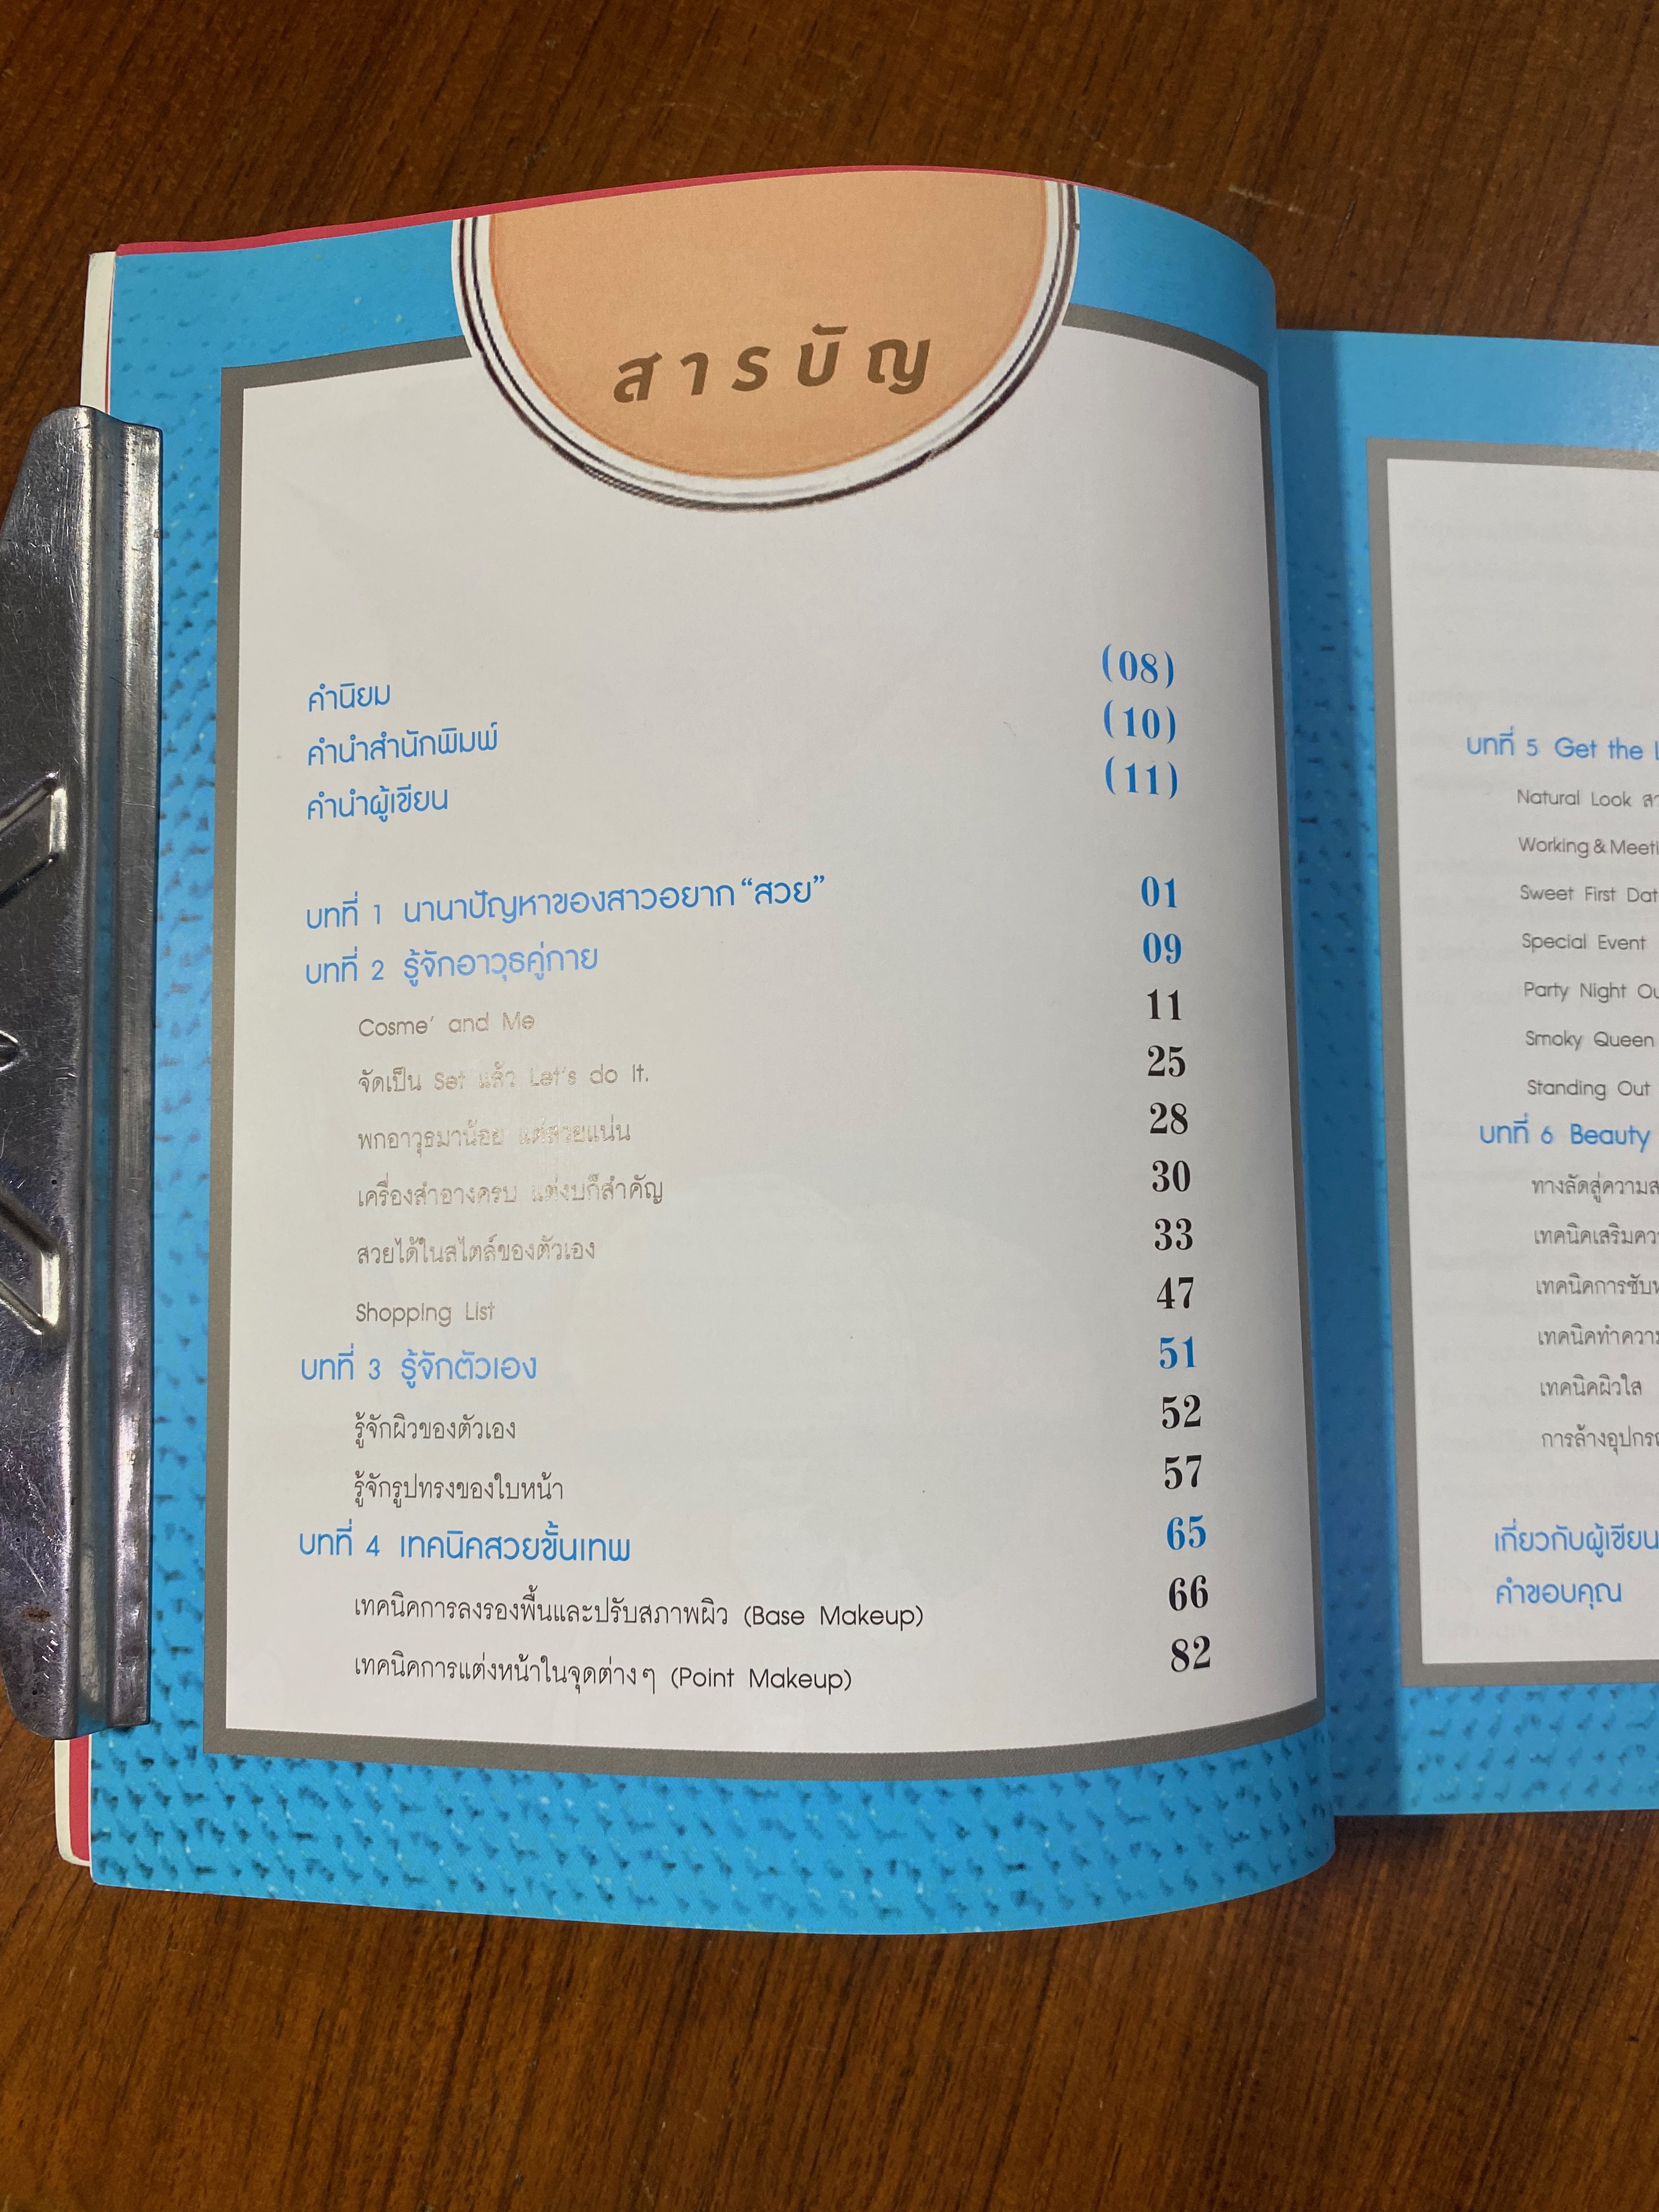 สารบัญ
คำนิยม (08)
คำนำสำนักพิมพ์ (10)
คำนำผู้เขียน (11)
บทที่ 1 นานาปัญหาของสาวอยาก “สวย” 01
บทที่ 2 รู้จักอาวุธคู่กาย 09
Cosme’ and Me 11
จัดเป็น Set แล้ว Let’s do it. 25
พกอาวุธมาน้อย แต่สวยแน่น 28
เครื่องสำอางครบ แต่งบก็สำคัญ 30
สวยได้ในสไตล์ของตัวเอง 33
Shopping List 47
บทที่ 3 รู้จักตัวเอง 51
รู้จักผิวของตัวเอง 52
รู้จักรูปทรงของใบหน้า 57
บทที่ 4 เทคนิคสวยขั้นเทพ 65
เทคนิคการลงรองพื้นและปรับสภาพผิว (Base Makeup) 66
เทคนิคการแต่งหน้าในจุดต่างๆ (Point Makeup) 82
บทที่ 5 Get the
Natural Look
Working & Meeti
Sweet First Dat
Special Event
Party Night
Smoky Queen
Standing Out
บทที่ 6 Beauty
ทางลัดสู่ความ
เทคนิคเสริม
เทคนิคการซับ
เทคนิคทำความ
เทคนิคผิวใส
การล้าง
เกี่ยวกับผู้เขียน
คำขอบคุณ